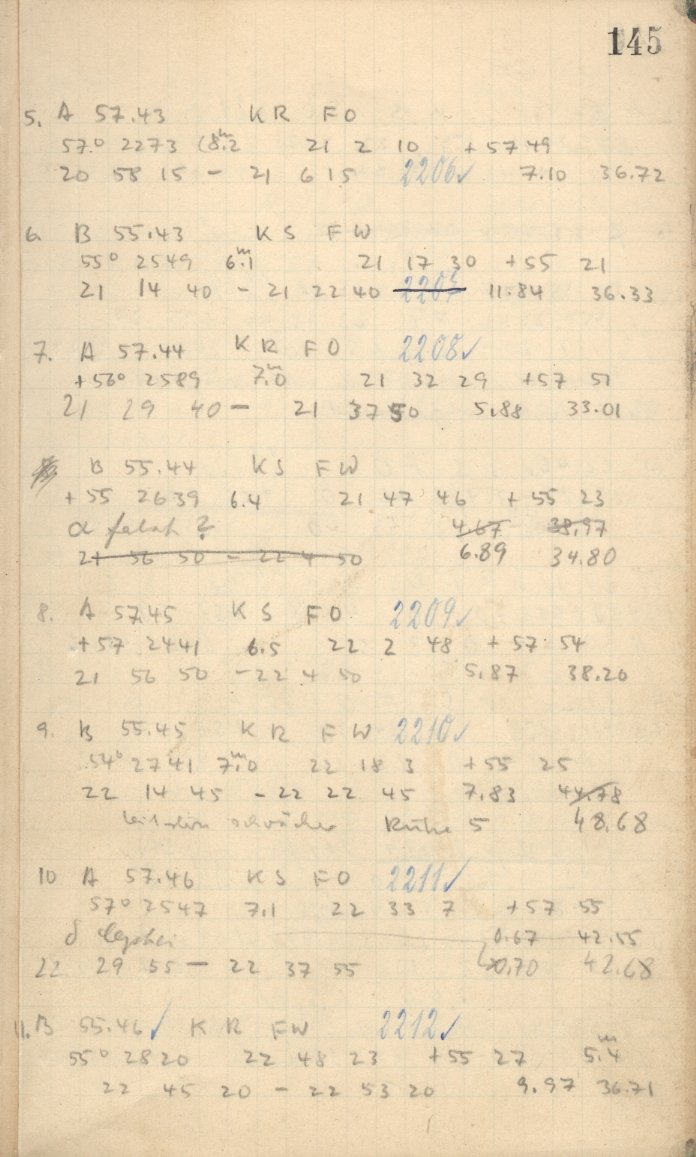 145
5. A 57.43 KR FO
57° 2273 (8.2ᵐ 21 2 10 +57 49
20 58 15 - 21 6 15 2206✓ 7.10 36.72
6. B 55.43 KS FW
55° 2549 6.1ᵐ 21 17 30 +55 21
21 14 40 - 21 22 40 2207 11.84 36.33
7. A 57.44 KR FO 2208✓
+56° 2589 7.0ᵐ 21 32 29 +57 51
21 29 40 - 21 37 50 5.88 33.01
B 55.44 KS FW
+55 2639 6.4 21 47 46 +55 23
α falsch ? 4.67 38.97
21 56 50 - 22 4 50 6.89 34.80
8. A 57.45 KS FO 2209✓
+57 2441 6.5 22 2 48 +57 54
21 56 50 - 22 4 50 5.87 38.20
9. B 55.45 KR FW 2210✓
54° 2741 7.0ᵐ 22 18 3 +55 25
22 14 45 - 22 22 45 7.83 44.78
schwächer 5 48.68
10 A 57.46 KS FO 2211✓
57° 2547 7.1 22 33 7 +57 55
δ 0.67 42.55
22 29 55 - 22 37 55 0.70 42.68
11. B 55.46✓ KR FW 2212✓
55° 2820 22 48 23 +55 27 5.4ᵐ
22 45 20 - 22 53 20 9.97 36.71